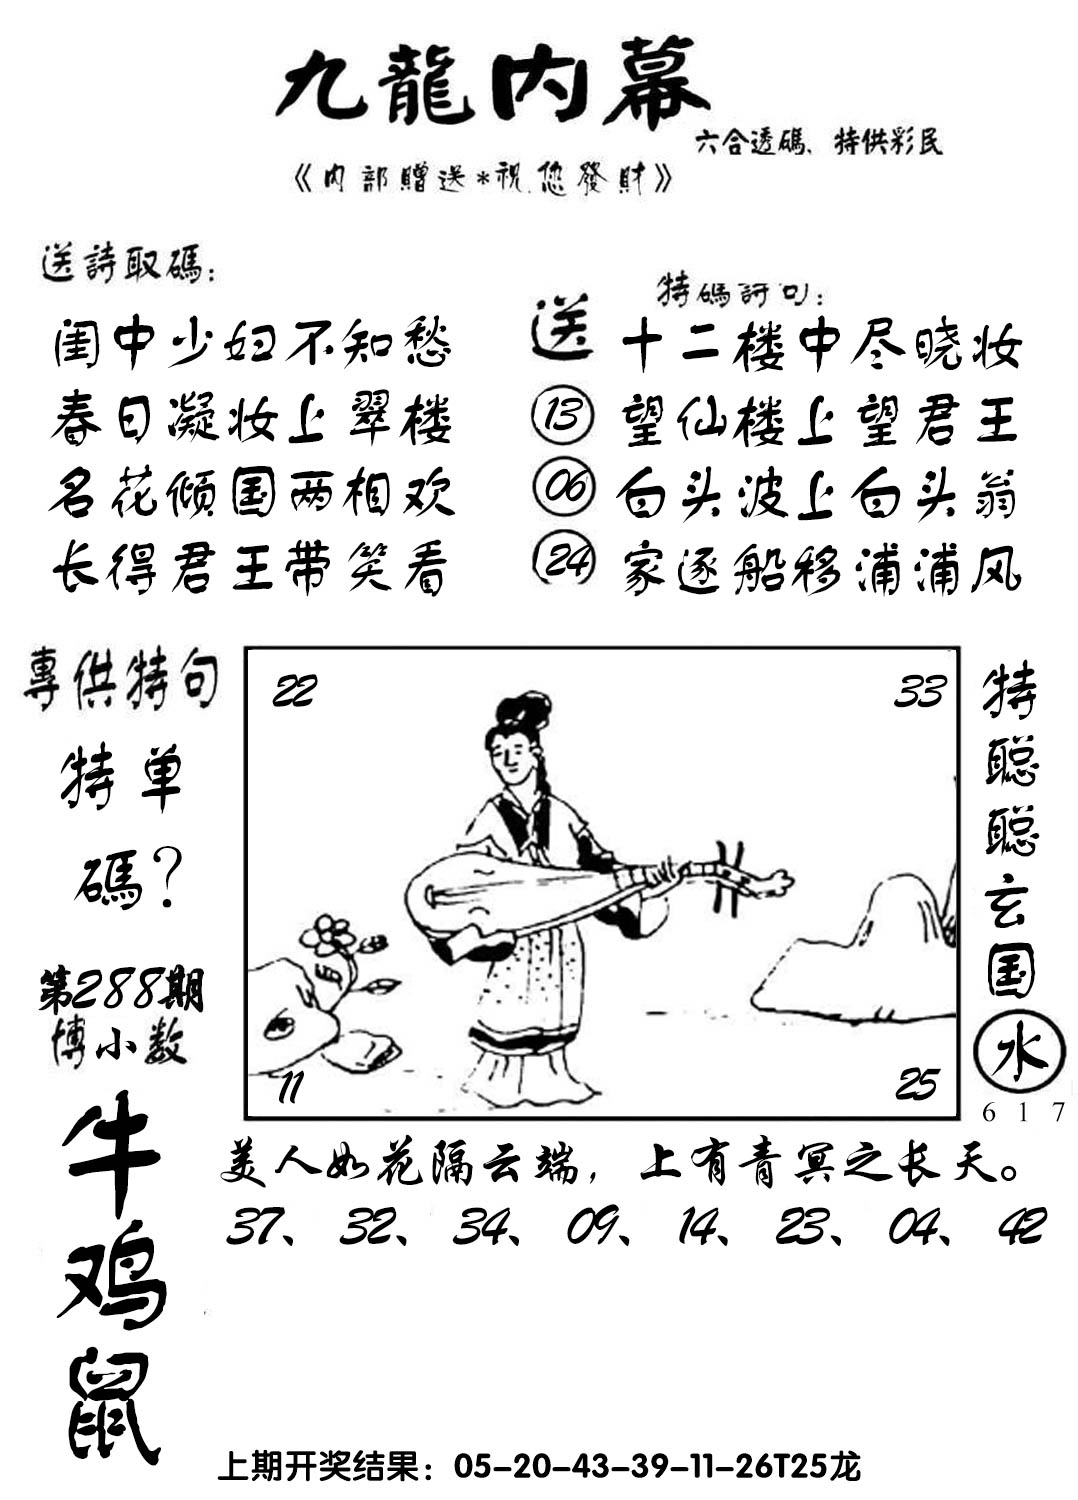 九龍内幕
六合透碼、特供彩民
《内部贈送*祝您發財》
送詩取碼：
闺中少妇不知愁
春日凝妆上翠楼
名花倾国两相欢
长得君王带笑看
送
13
06
24
特碼詩句：
十二楼中尽晓妆
望仙楼上望君王
白头波上白头翁
家逐船移浦浦风
專供特句
特单
碼？
第288期
博小数
牛
鸡
鼠
22
33
11
25
特
聪
聪
玄
国
水
6 1 7
美人如花隔云端，上有青冥之长天。
37、32、34、09、14、23、04、42
上期开奖结果：05-20-43-39-11-26T25龙